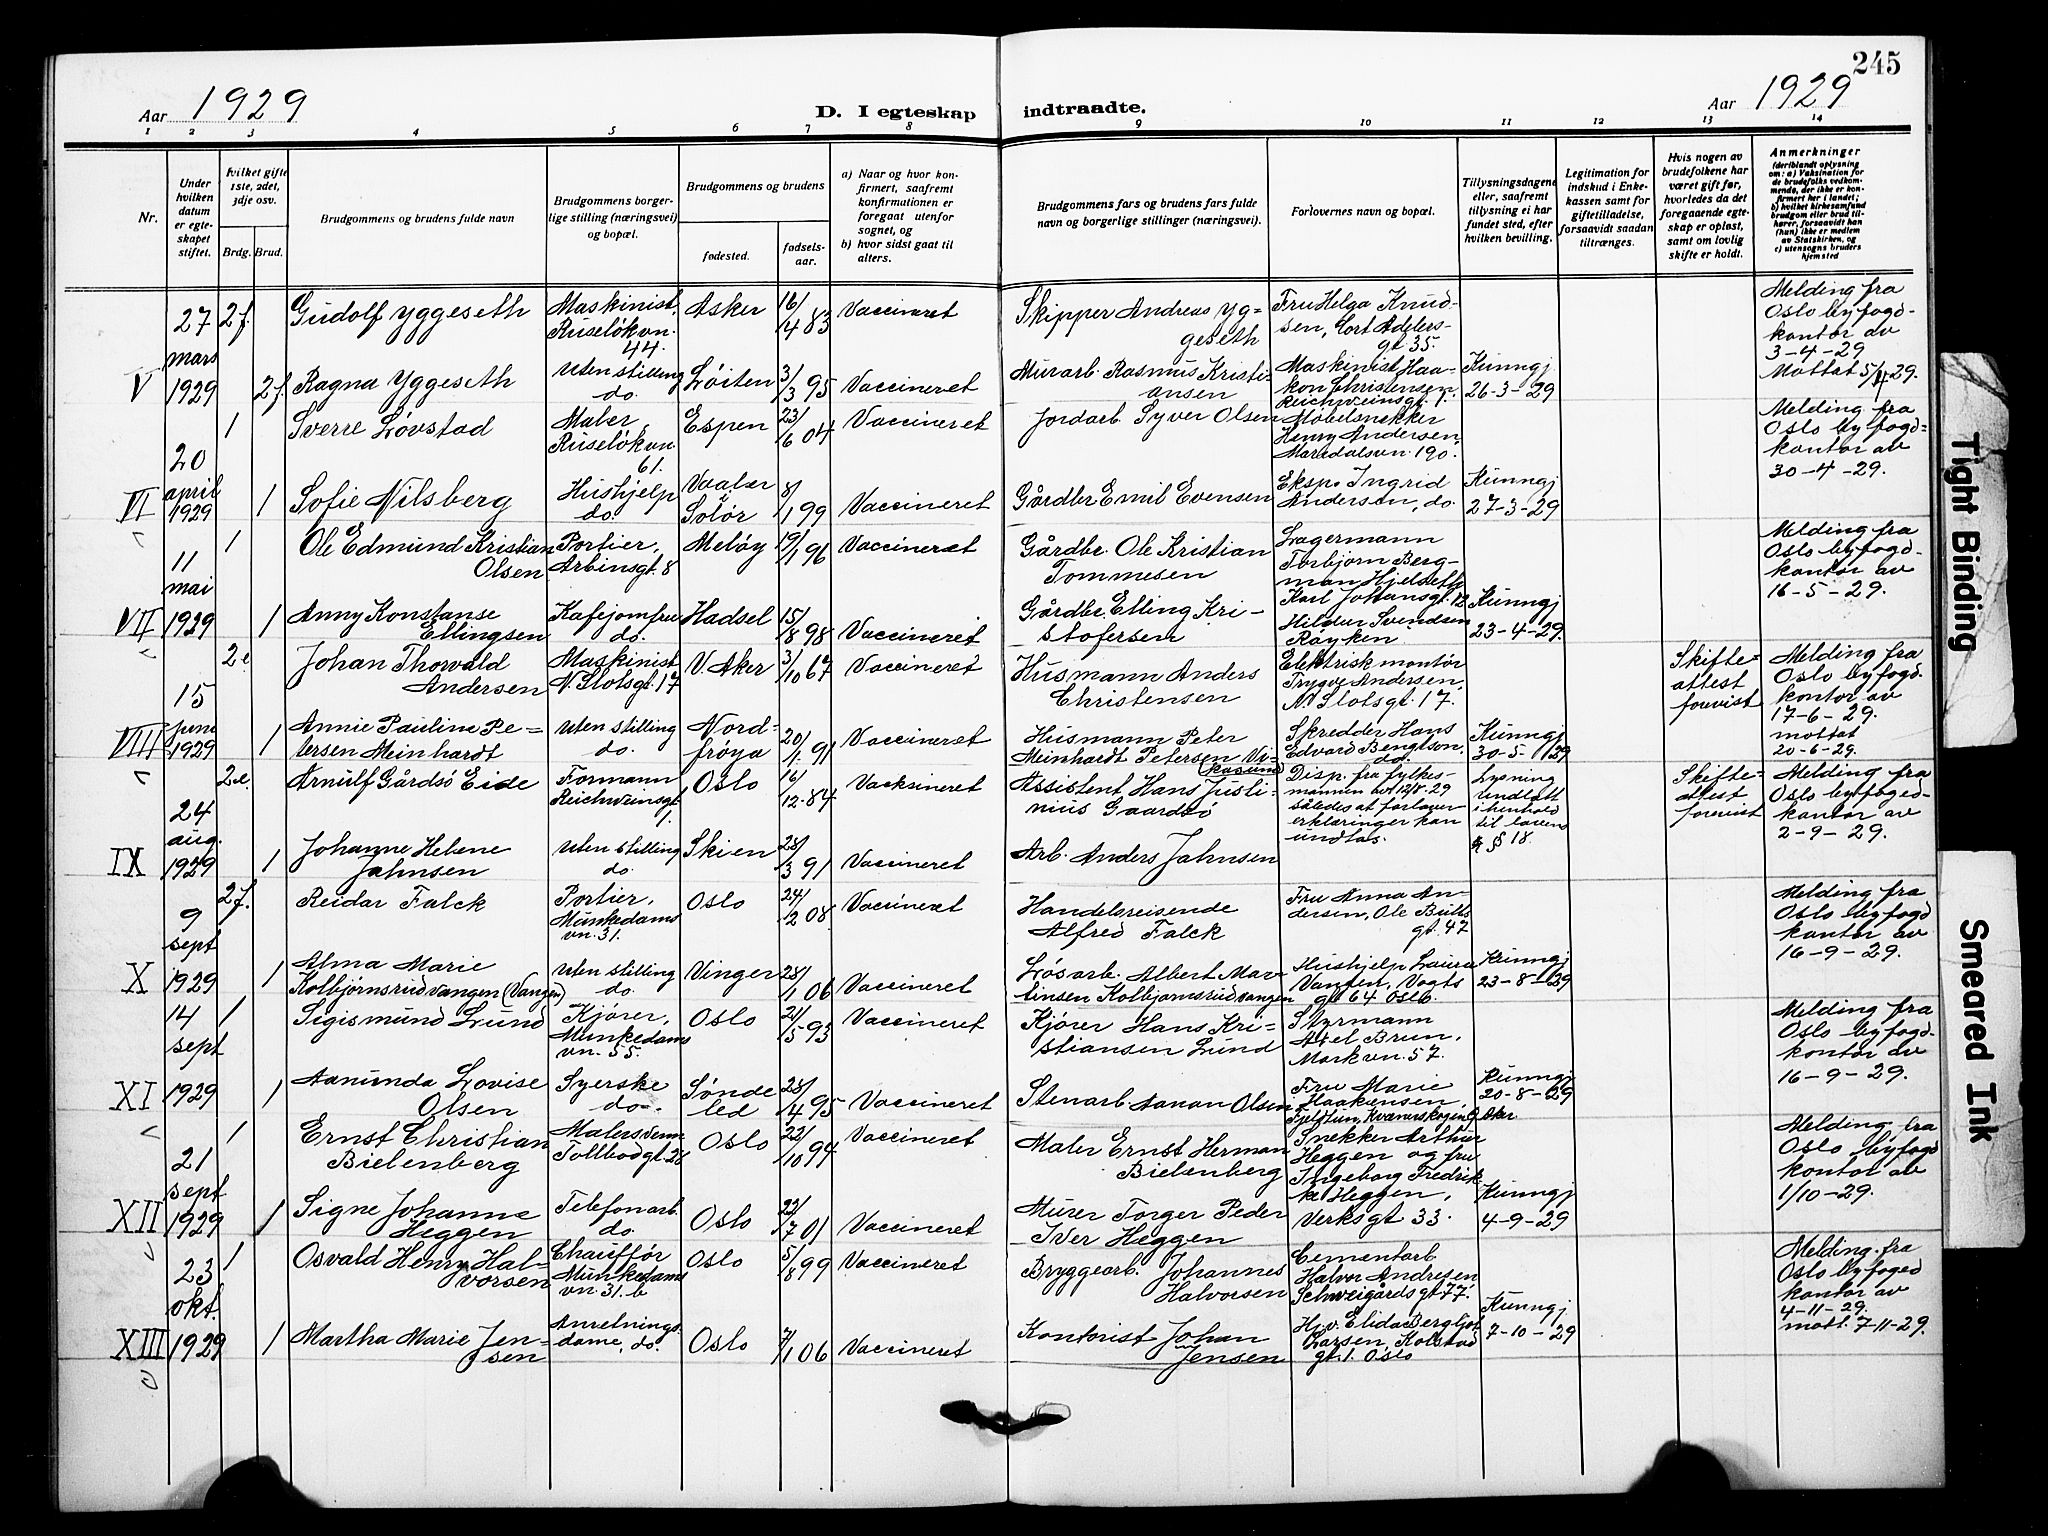 245
Aar 1929
D. I egteskap indtraadte.
Aar 1929
1 2 3 4 5 6 7 8 9 10 11 12 13 14
Nr.
Under
hvilken
datum
er egte-
skapet
stiftet.
hvilket gifte
1ste, 2det,
3dje osv.
Brdg. Brud.
Brudgommens og brudens fulde navn
Brudgommens borger-
lige stilling (næringsvei)
og bopæl.
Brudgommens og brudens
fødested.
fødsels-
aar.
a) Naar og hvor kon-
firmert, saafremt
konfirmationen er
foregaat utenfor
sognet, og
b) hvor sidst gaat til
alters.
Brudgommens fars og brudens fars fulde
navn og borgerlige stillinger (næringsvei).
Forlovernes navn og bopæl.
Tillysningsdagene
eller, saafremt
tillysning ei har
fundet sted, efter
hvilken bevilling.
Legitimation for
indskud i Enke-
kassen samt for
giftetilladelse,
forsaavidt saadan
tiltrænges.
Hvis nogen av
brudefolkene har
været gift før,
hvorledes da det
foregaaende egte-
skap er opløst,
samt om lovlig
skifte er holdt.
Anmerkninger
(deriblandt oplysning
om: a) Vaksination for
de brudefolks vedkom-
mende, der ikke er kon-
firmert her i landet;
b) hvilket kirkesamfund
brudgom eller brud til-
hører, forsaavidt han
(hun) ikke er medlem
av Statskirken, og
c) utensogns bruders
hjemsted
V
27
mars
1929
2 f.
Gudolf Yggeseth
Maskinist,
Ruseløkvn.
44.
Asker
16/
14 83
Vaccineret
Skipper Andreas Yg-
geseth
Fru Helga Knud-
sen, Cort Adelers-
gt 35.
Melding fra
Oslo byfogd-
kontor av
3-4-29
Mottat 5/4 29.
2 f.
Ragna Yggeseth
Uten stilling
do.
Løiten
3/
3 95
Vaccineret
Murarb. Rasmus Kristi-
ansen
Maskinist Haa-
kon Christensen
Reichweinsgt. 1.
Kunngj
26-3-29
VI
20
april
1929
1
Sverre Løvstad
Maler,
Ruseløkvn.
61.
Espen
23/
6 04
Vaccineret
Jordarb. Syver Olsen
Møbelsnekker
Henry Andersen,
Maridalsvn. 190.
Melding fra
Oslo byfogd-
kontor av
30-4-29.
1
Sofie Nilsberg
Hushjelp
do.
Vaaler
i
Solør
8/
1 99
Vaccineret
Gårdbr Emil Evensen
Eksp. Ingrid
Anderson, do.
Kunngj
27-3-29
VII
11
mai
1929
1
Ole Edmund Kristian
Olsen
Portier,
Arbinsgt. 8
Meløy
19/
1 96
Vaccineret
Gårdbr. Ole Kristian
Tommesen
Lagermann
Torbjørn Berg-
man Hjelseth
Karl Johansgt. 12
Melding fra
Oslo byfogd-
kontor av
16-5-29.
1
Anny Konstanse
Ellingsen
Kafejomfru
do.
Hadsel
15/
8 98
Vaccineret
Gårdbr. Elling Kri-
stofersen
Hildur Svendsen
Røyken
Kunngj
23-4-29.
VIII
15
juni
1929
2 e
Johan Thorvald
Andersen
Maskinist
N. Slotsgt. 17
V. Aker
3/
10 67
Vaccineret
Husmann Anders
Christensen
Elektrisk montør
Trygve Andersen,
N. Slotsgt. 17.
Skifte-
attest
forevist
Melding fra
Oslo byfogd.
kontor av
17-6-29.
mottat
20-6-29.
1
Annie Pauline Pe-
tersen Meinhardt
Uten stilling
do.
Nord-
frøya
20/
1 91
Vaccineret
Husmann Peter
Meinhardt Petersen
Skredder Hans
Edvard Bengtson,
do.
Kunngj
30-5-1929
IX
24
aug.
1929
2 e.
Arnulf Gårdsø Eide
Formann
Reichweinsgt.
1.
Oslo
16/
12 84
Vacksineret
Assistent Hans Justi-
nius Gaardsø
Disp. fra fylkes-
mannen av 12/8-29
således at forlover
erklæringer kan
undlas.
Lysning
undlatt
i henhold
til lovens
§ 18.
Skifte-
attest
forevist
Melding fra
Oslo byfoged-
kontor av
2-9-29.
1
Johanne Helene
Jahnsen
Uten stilling
do.
Skien
28/
3 91
Vaccineret
Arb. Anders Jahnsen
X
9
sept
1929
2 f.
Reidar Falck
Portier,
Munkedams
vn. 31.
Oslo
24/
2 08
Vaccineret
Handelsreisende
Alfred Falck
Fru Anna An-
dersen, Ole Bulls
gt. 47
Melding fra
Oslo byfogd
kontor av
16-9-29.
1
Alma Marie
Kolbjørnsrudvangen (Vangen)
Uten stilling
do.
Vinger
28/
1 06
Vaccineret
Løsarb. Albert Mar-
tinsen Kolbjørnsrudvangen
Hushjelp Laura
Vangen, Vogts
gt 64 Oslo.
Kunngj
23-8-1929
XI
14
sept
1929
1
Sigismund Lund
Kjører,
Munkedams
vn. 55.
Oslo
21/
5 93
Vaccineret
Kjører Hans Kri-
stiansen Lund
Styrmann
Axel Brun,
Markvn. 57.
Melding fra
Oslo byfogd-
kontor av
16-9-29.
1
Aanunda Lovise
Olsen
Syerske
do.
Sønde
led
28/
4 95
Vaccineret
Stenarb Aanon Olsen
Fru Marie
Haakensen,
Fjeldtun, Kværnskogen, Ø. Aker
Kunngj
20-8-29
XII
21
sept
1929
1
Ernst Christian
Bielenberg
Malersvenn
Tollbodgt. 28
Oslo
22/
10 94
Vaccineret
Maler Ernst Herman
Bielenberg
Snekker Arthur
Heggen og fru
Ingeborg Fredrik-
ke Heggen,
Verksgt 33.
Melding fra
Oslo byfogd
kontor av
1/10-29.
1
Signe Johanne
Heggen
Telefonarb.
do.
Oslo
22/
7 01
Vaccineret
Murer Torger Peder
Iver Heggen
Kunngj
4-9-29
XIII
23
okt.
1929
1
Osvald Henry Hal-
vorsen
Chauffør
Munkedams
vn. 31. b
Oslo
5/
8 99
Vaccineret
Bryggearb. Johannes
Halvorsen
Cementarb.
Halvor Andresen
Schweigårds gt. 77.
Melding fra
Oslo byfoged
kontor av
4-11-29.
mott. 7-11-29.
1
Martha Marie Jen-
sen
Anretnings
dame, do.
Oslo
7/
1 06
Vaccineret
Kontorist Johan
Jensen
Hjv. Elida Bergljot
Larsen, Kolstad
gt. 1. Oslo
Kunngj
7-10-29
Tight Binding
Smeared Ink